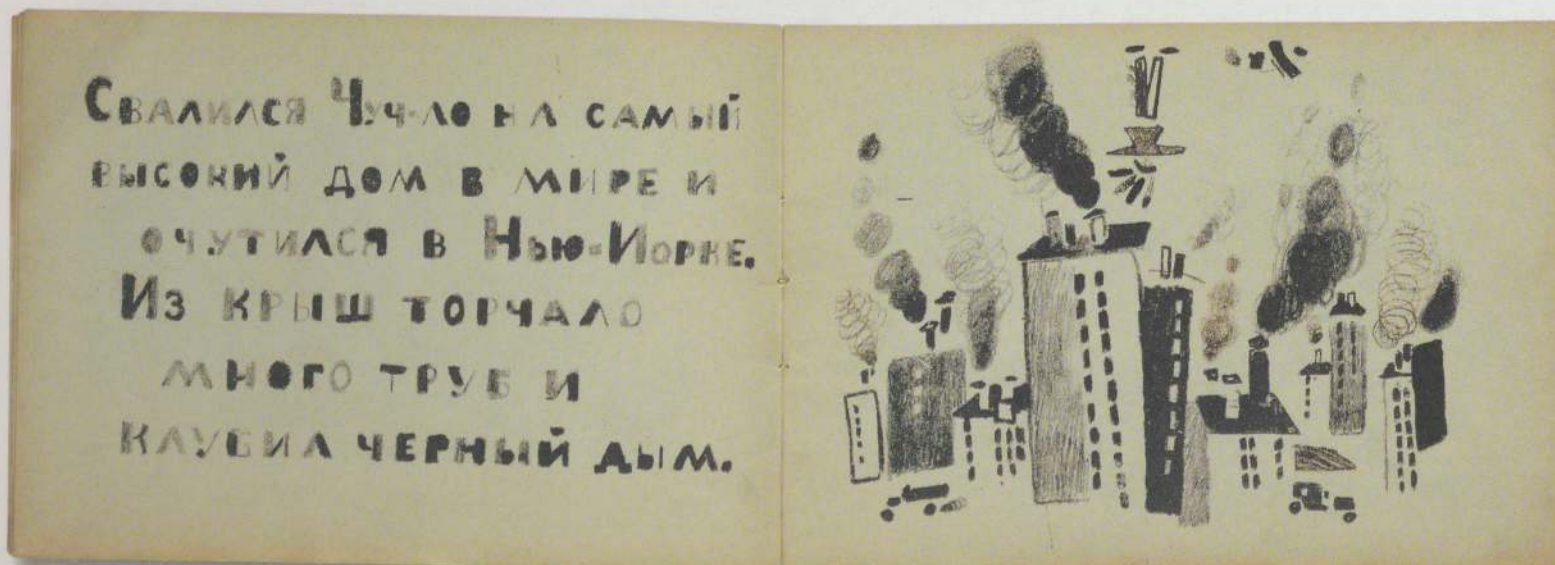 Свалился Чуч-ло на самый
высокий дом в мире и
очутился в Нью-Иорке.
Из крыш торчало
много труб и
клубил черный дым.